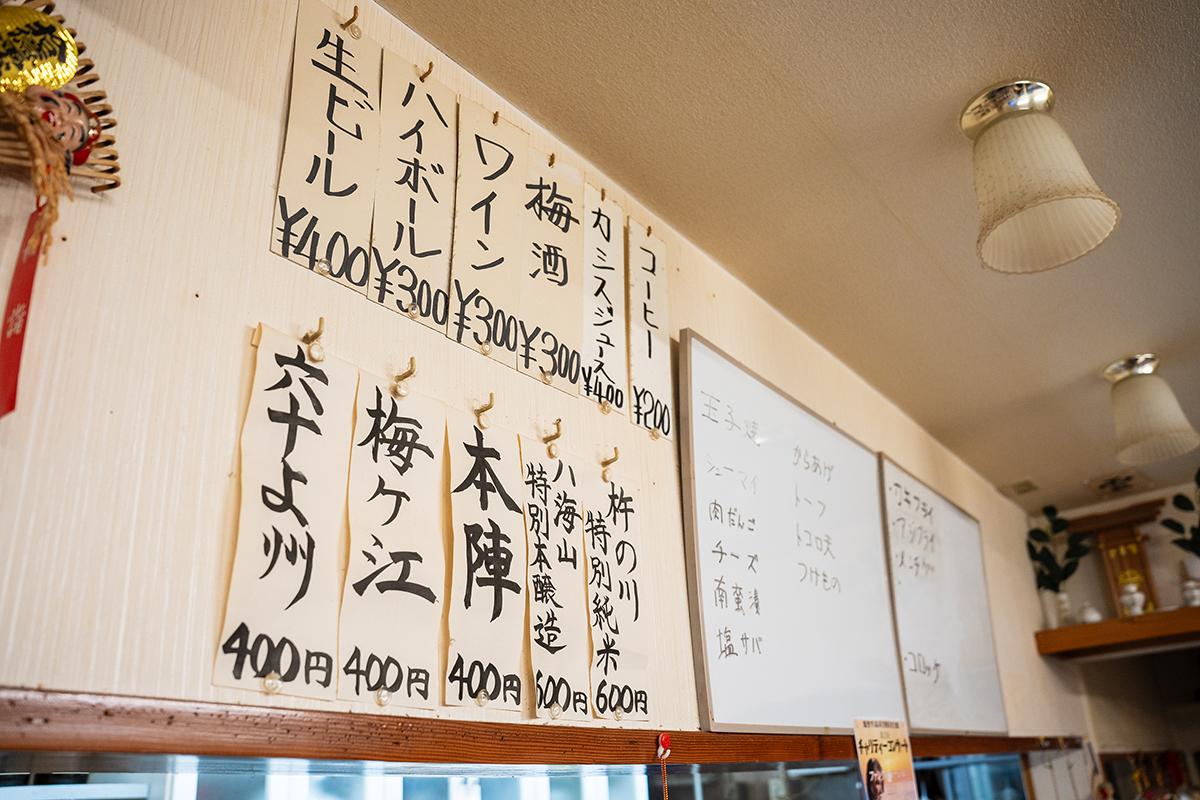 生ビール
¥400
ハイボール
¥300
ワイン
¥300
梅酒
¥300
カシスジュース
¥400
コーヒー
¥200
六十余州
400円
梅ヶ江
400円
本陣
400円
八海山
特別本醸造
600円
杵の川
特別純米
600円
玉子焼
シューマイ
肉だんご
チーズ
南蛮漬
塩サバ
からあげ
トーフ
トコロ天
つけもの
・カキフライ
・アジフライ
・メンチカツ
・コロッケ
チャリティーコンサート